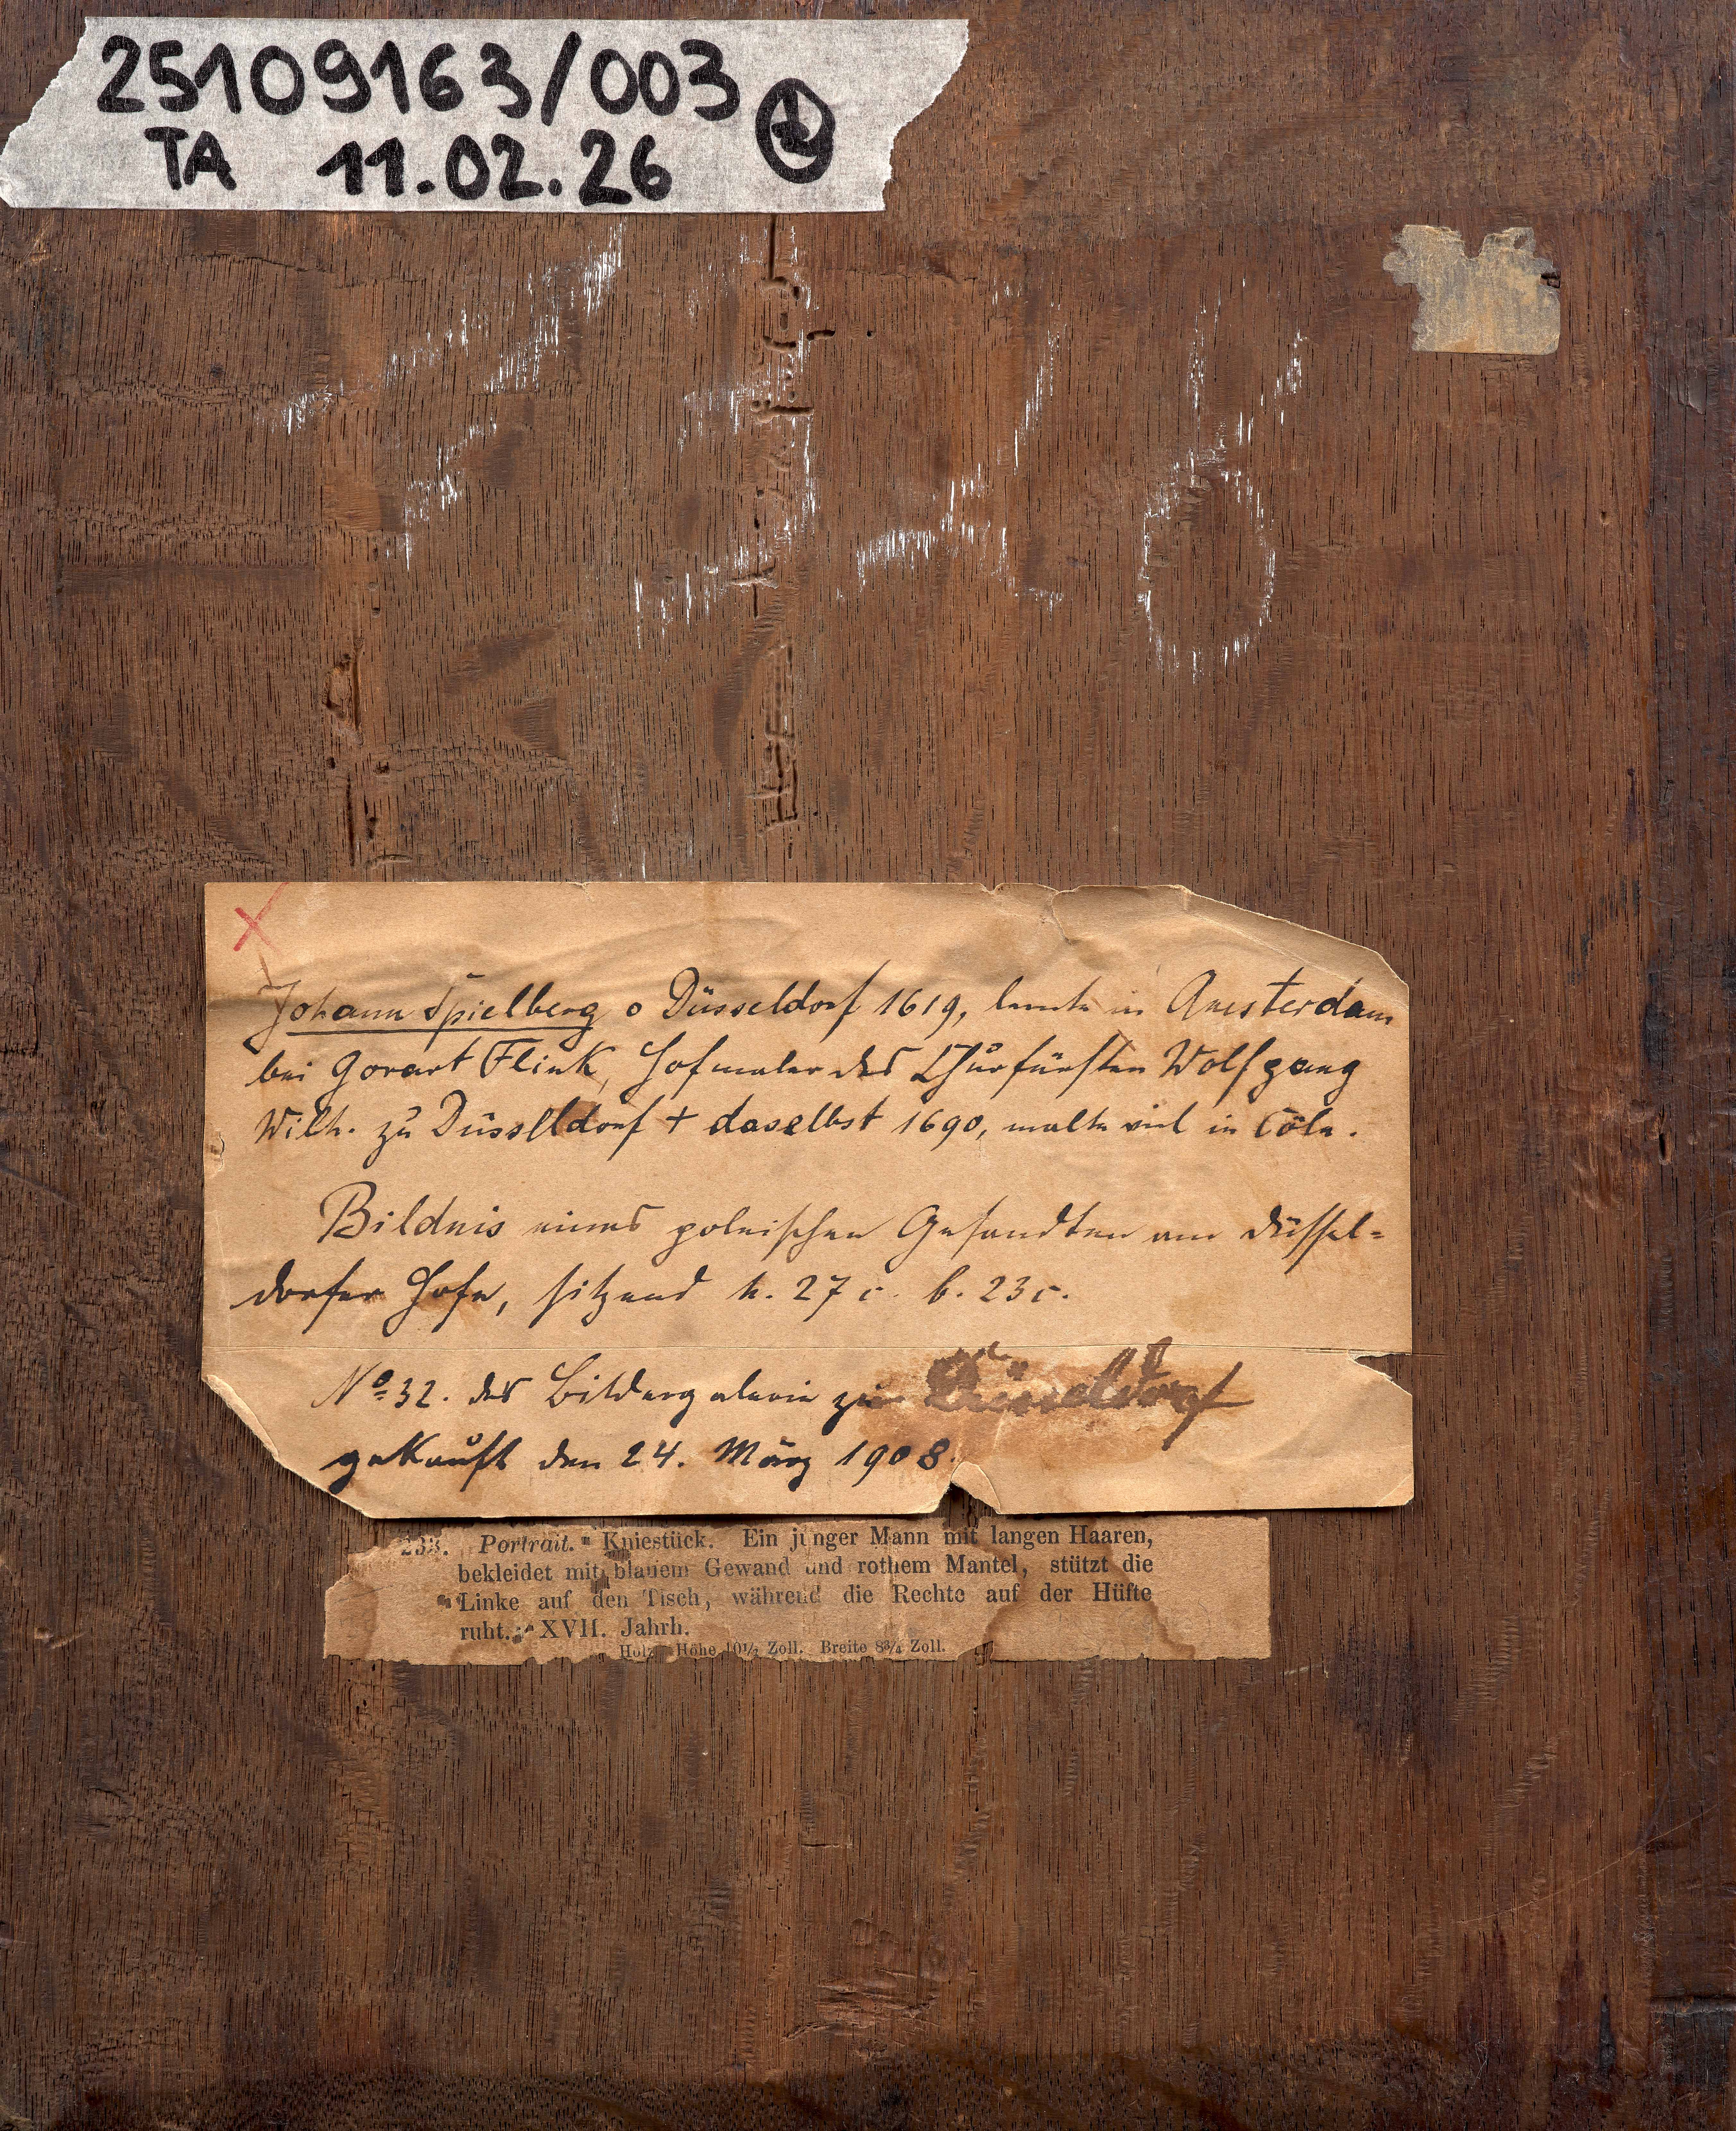 25109163/003
TA 11.02.26
Johann Spielberg o Düsseldorf 1619, lernte in Amsterdam
bei Govart Flink, Hofmaler des Churfürsten Wolfgang
Wilh. zu Düsseldorf + daselbst 1690, malte viel in Cöln.
Bildnis eines polnischen Gesandten am Düssel=
dorfer Hofe, sitzend h. 27 c. b. 23 c.
No 32. der Bildergalerie zu Düsseldorf
gekauft den 24. März 1908.
233. Portrait. Kniestück. Ein junger Mann mit langen Haaren,
bekleidet mit blauem Gewand und rothem Mantel, stützt die
Linke auf den Tisch, während die Rechte auf der Hüfte
ruht. XVII. Jahrh.
Holz. Höhe 10½ Zoll. Breite 8¾ Zoll.